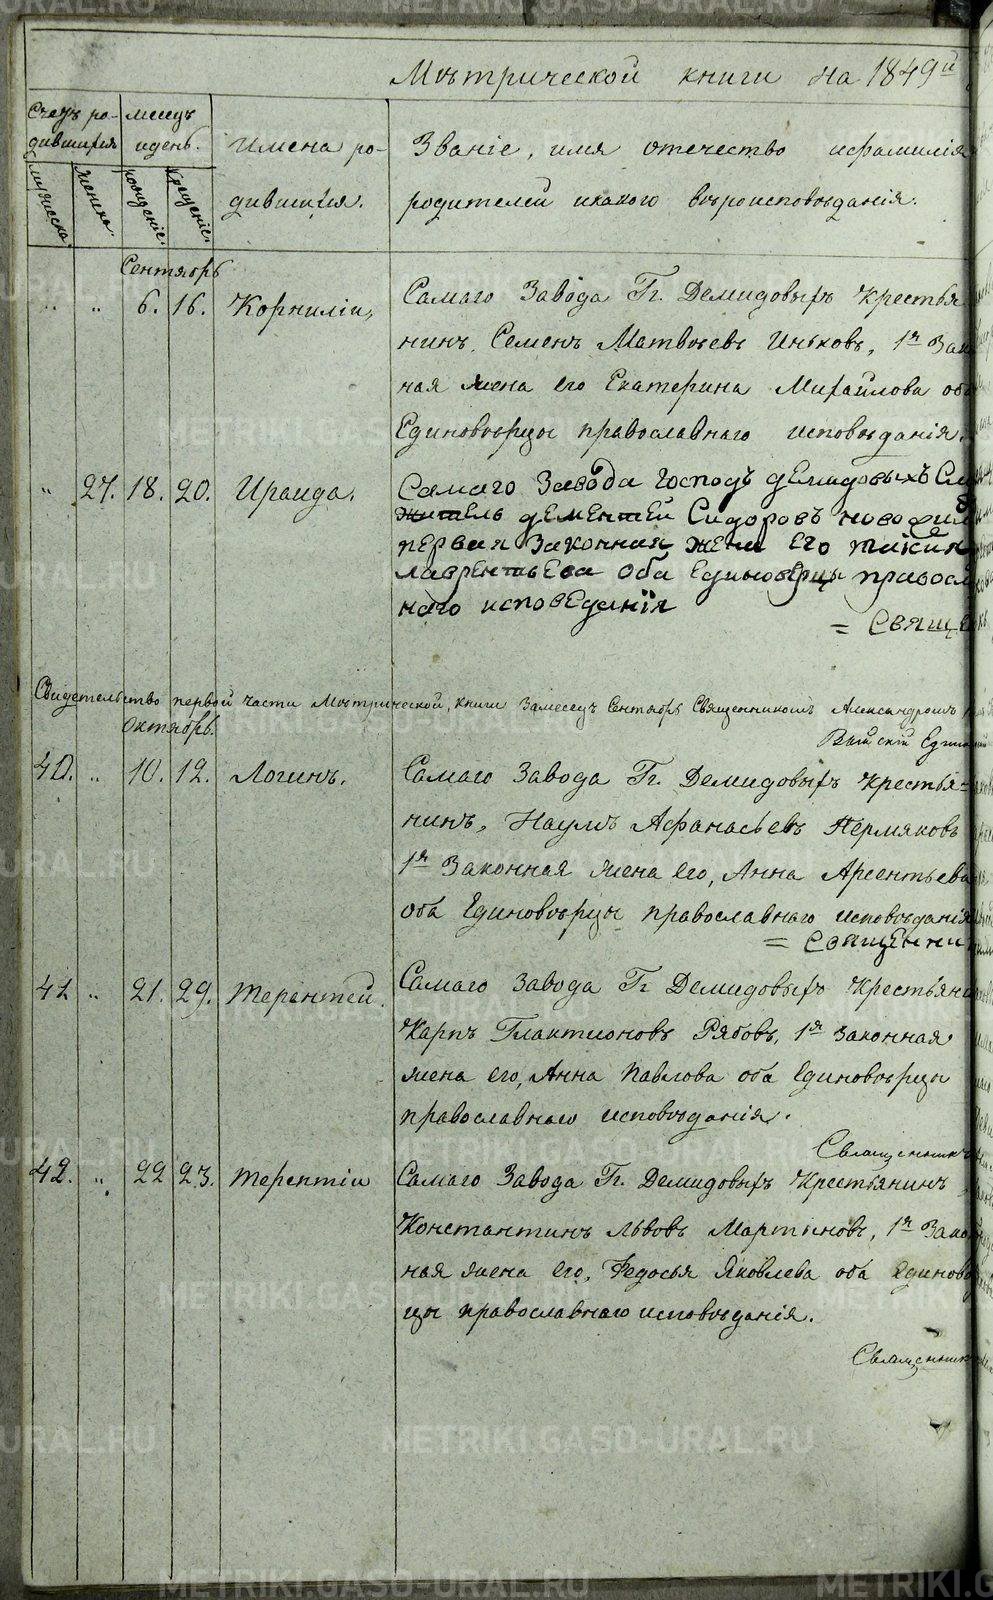 Мѣтрической книги на 1849й
Счетъ ро- месецъ
дившихся идень. Имена ро- Званіе, имя отечество ифамилія
мужеска женска рожденіе. Крещеніе. дившихся. родителей икакого вѣроисповѣданія.
Сентябрь
" " 6. 16. Корнилій, Самаго Завода Гг. Демидовыхъ Крестья
нинъ, Семенъ Матвѣевъ Иньковъ, 1я Зак
ная жена его Екатерина Михайлова оба
Единовѣрцы православнаго исповѣданія.
" 27. 18. 20. Ираида. Самаго Завода Господъ Демидовыхъ Сл
житель Дементей Сидоровъ
первая Законная жена Его
лаврентьева оба Единоверцы правосл
наго исповеданія
= Свяще
Свидетельство первой части Мѣтрической, книги Замесецъ Сентябрь Священникомъ Александромъ
Октябрь. Выйскій Един
40. " 10. 12. Логинъ. Самаго Завода Гг. Демидовыхъ крестья-
нинъ, Наумъ Афанасьевъ Пермяковъ
1я Законная жена его, Анна Арсентьева
оба Единовѣрцы православнаго исповѣданія
= Священни
41 " 21. 29. Терентей. Самаго Завода Гг Демидовыхъ Крестьяни
Карпъ Глактионовъ Рябовъ, 1я Законная
жена его, Анна Павлова оба Единовѣрцы
православнаго исповѣданія.
Священникъ
42. " 22 23. Терентій Самаго Завода Гг. Демидовыхъ Крестьянинъ
Константинъ Львовъ Мартыновъ, 1я Закон
ная жена его, Федосья Яковлева оба Единовѣ
цы православнаго исповѣданія.
Священник
METRIKI.GASO-URAL.RU